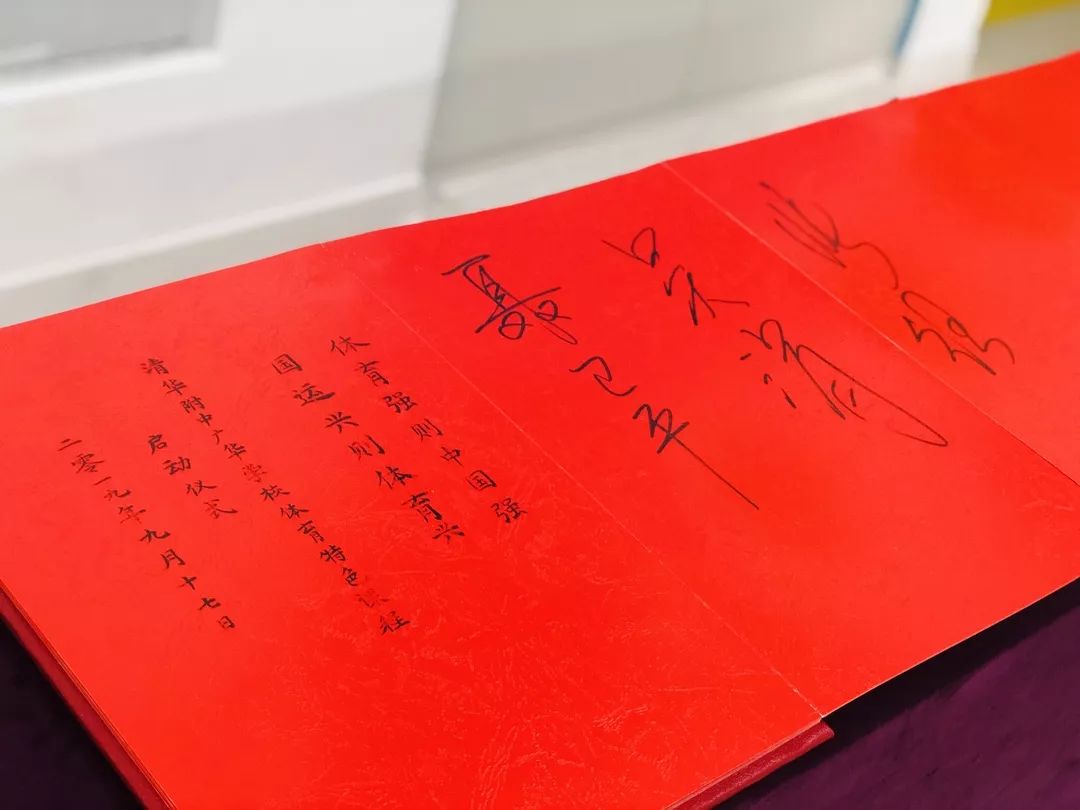 聂卫平
体育强则中国强
国运兴则体育兴
清华附中广华学校体育特色课程
启动仪式
二零一九年九月十七日